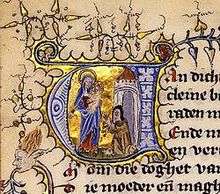 VAn dich
cleine b
raden m
Ende m
en ver
om die doghet va
ie moeder en̄ ma